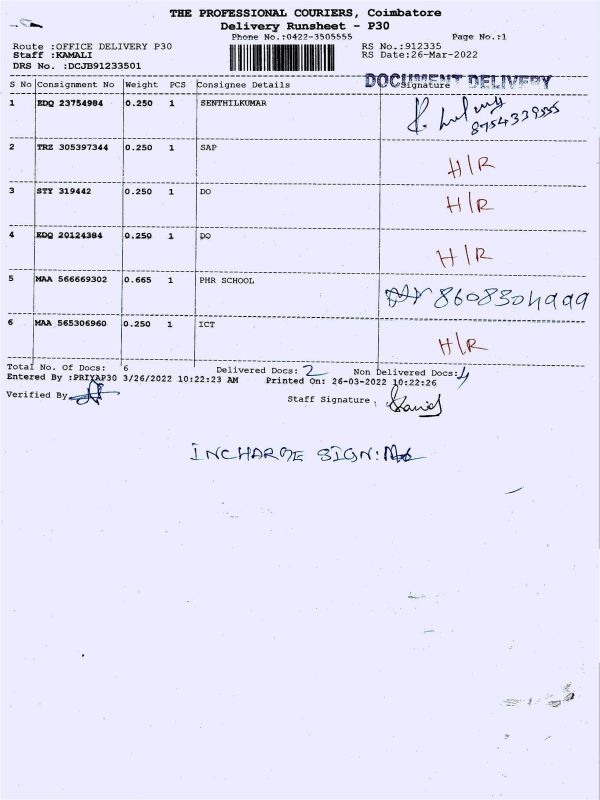 THE PROFESSIONAL COURIERS, Coimbatore
Delivery Runsheet - P30
Phone No.:0422-3505555 Page No.:1
Route :OFFICE DELIVERY P30 RS No.:912335
Staff :KAMALI RS Date:26-Mar-2022
DRS No. :DCJB91233501
DOCUMENT DELIVERY
S No Consignment No Weight PCS Consignee Details Signature
1 EDQ 23754984 0.250 1 SENTHILKUMAR
8754339555
2 TRZ 305397344 0.250 1 SAP H/R
3 STY 319442 0.250 1 DO H/R
4 EDQ 20124384 0.250 1 DO H/R
5 MAA 566669302 0.665 1 PHR SCHOOL 8608304999
6 MAA 565306960 0.250 1 ICT H/R
Total No. Of Docs: 6 Delivered Docs: 2 Non Delivered Docs: 4
Entered By :PRIYAP30 3/26/2022 10:22:23 AM Printed On: 26-03-2022 10:22:26
Verified By Staff Signature :
INCHARGE SIGN: